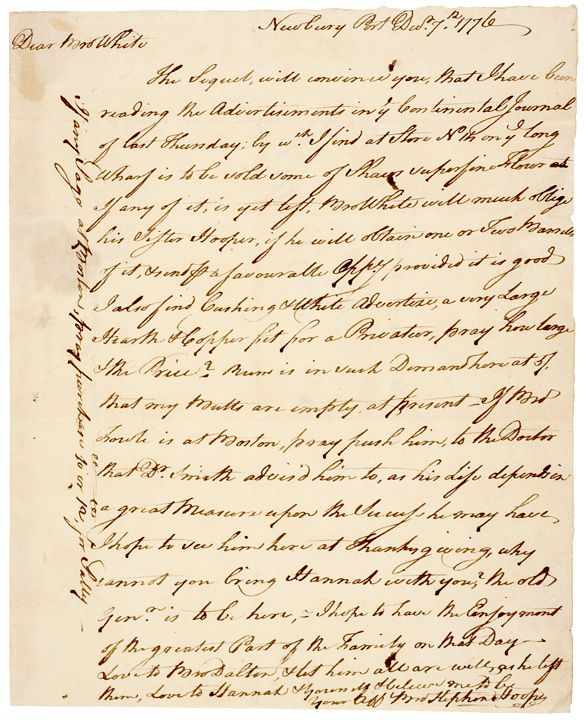 Newbury Port Decr 7th 1776
Dear Bro White
The Sequel, will convince you, that I have been
reading the Advertisements in ye Continental Journal
of last Thursday; by wch I find at Store No 14 on ye long
Wharf is to be sold some of Shaws superfine Flour
If any of it, is yet left, Bro White will much oblige
his Sister Hooper, if he will obtain one or Two Barrels
of it, & send pr a favourable Oppty provided it is good
I also find Cushing & White Advertize, a very Large
Hearth & Copper fit for a Privateer, pray how large
& the Price? Rum is in such Demand here at 5/.
that my Butts are empty, at present – If Bro
Fowle is at Boston, pray push him, to the Doctor
that Dr. Smith advis'd him to, as his life depends in
a great Measure upon the Success he may have
I hope to see him here at Thanksgiving, why
cannot you bring Hannah with you? the old
Genr. is to be here, – I hope to have the Enjoyment
of the greatest Part of the Family on that Day –
Love to Bro Dalton, & let him all are well, as he left
them, Love to Hannah & yourself & believe me to be
your Aff Bro Stephen Hooper
If any Sago at Boston, pray purchase for Sally –